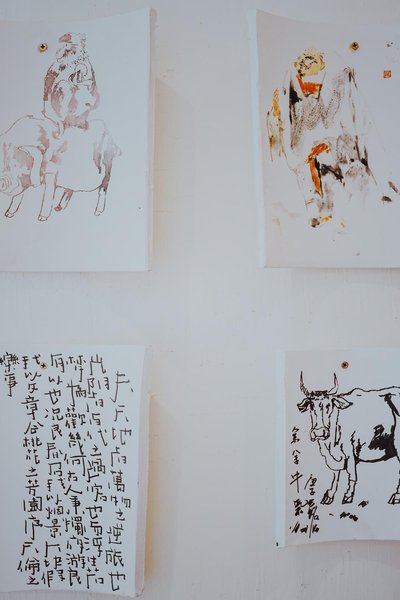 夫天地者萬物之逆旅也
光陰者百代之過客也而浮生若
夢為歡幾何古人秉燭夜遊良
有以也況陽春召我以烟景大塊假
我以文章會桃花之芳園序天倫之
樂事
牛